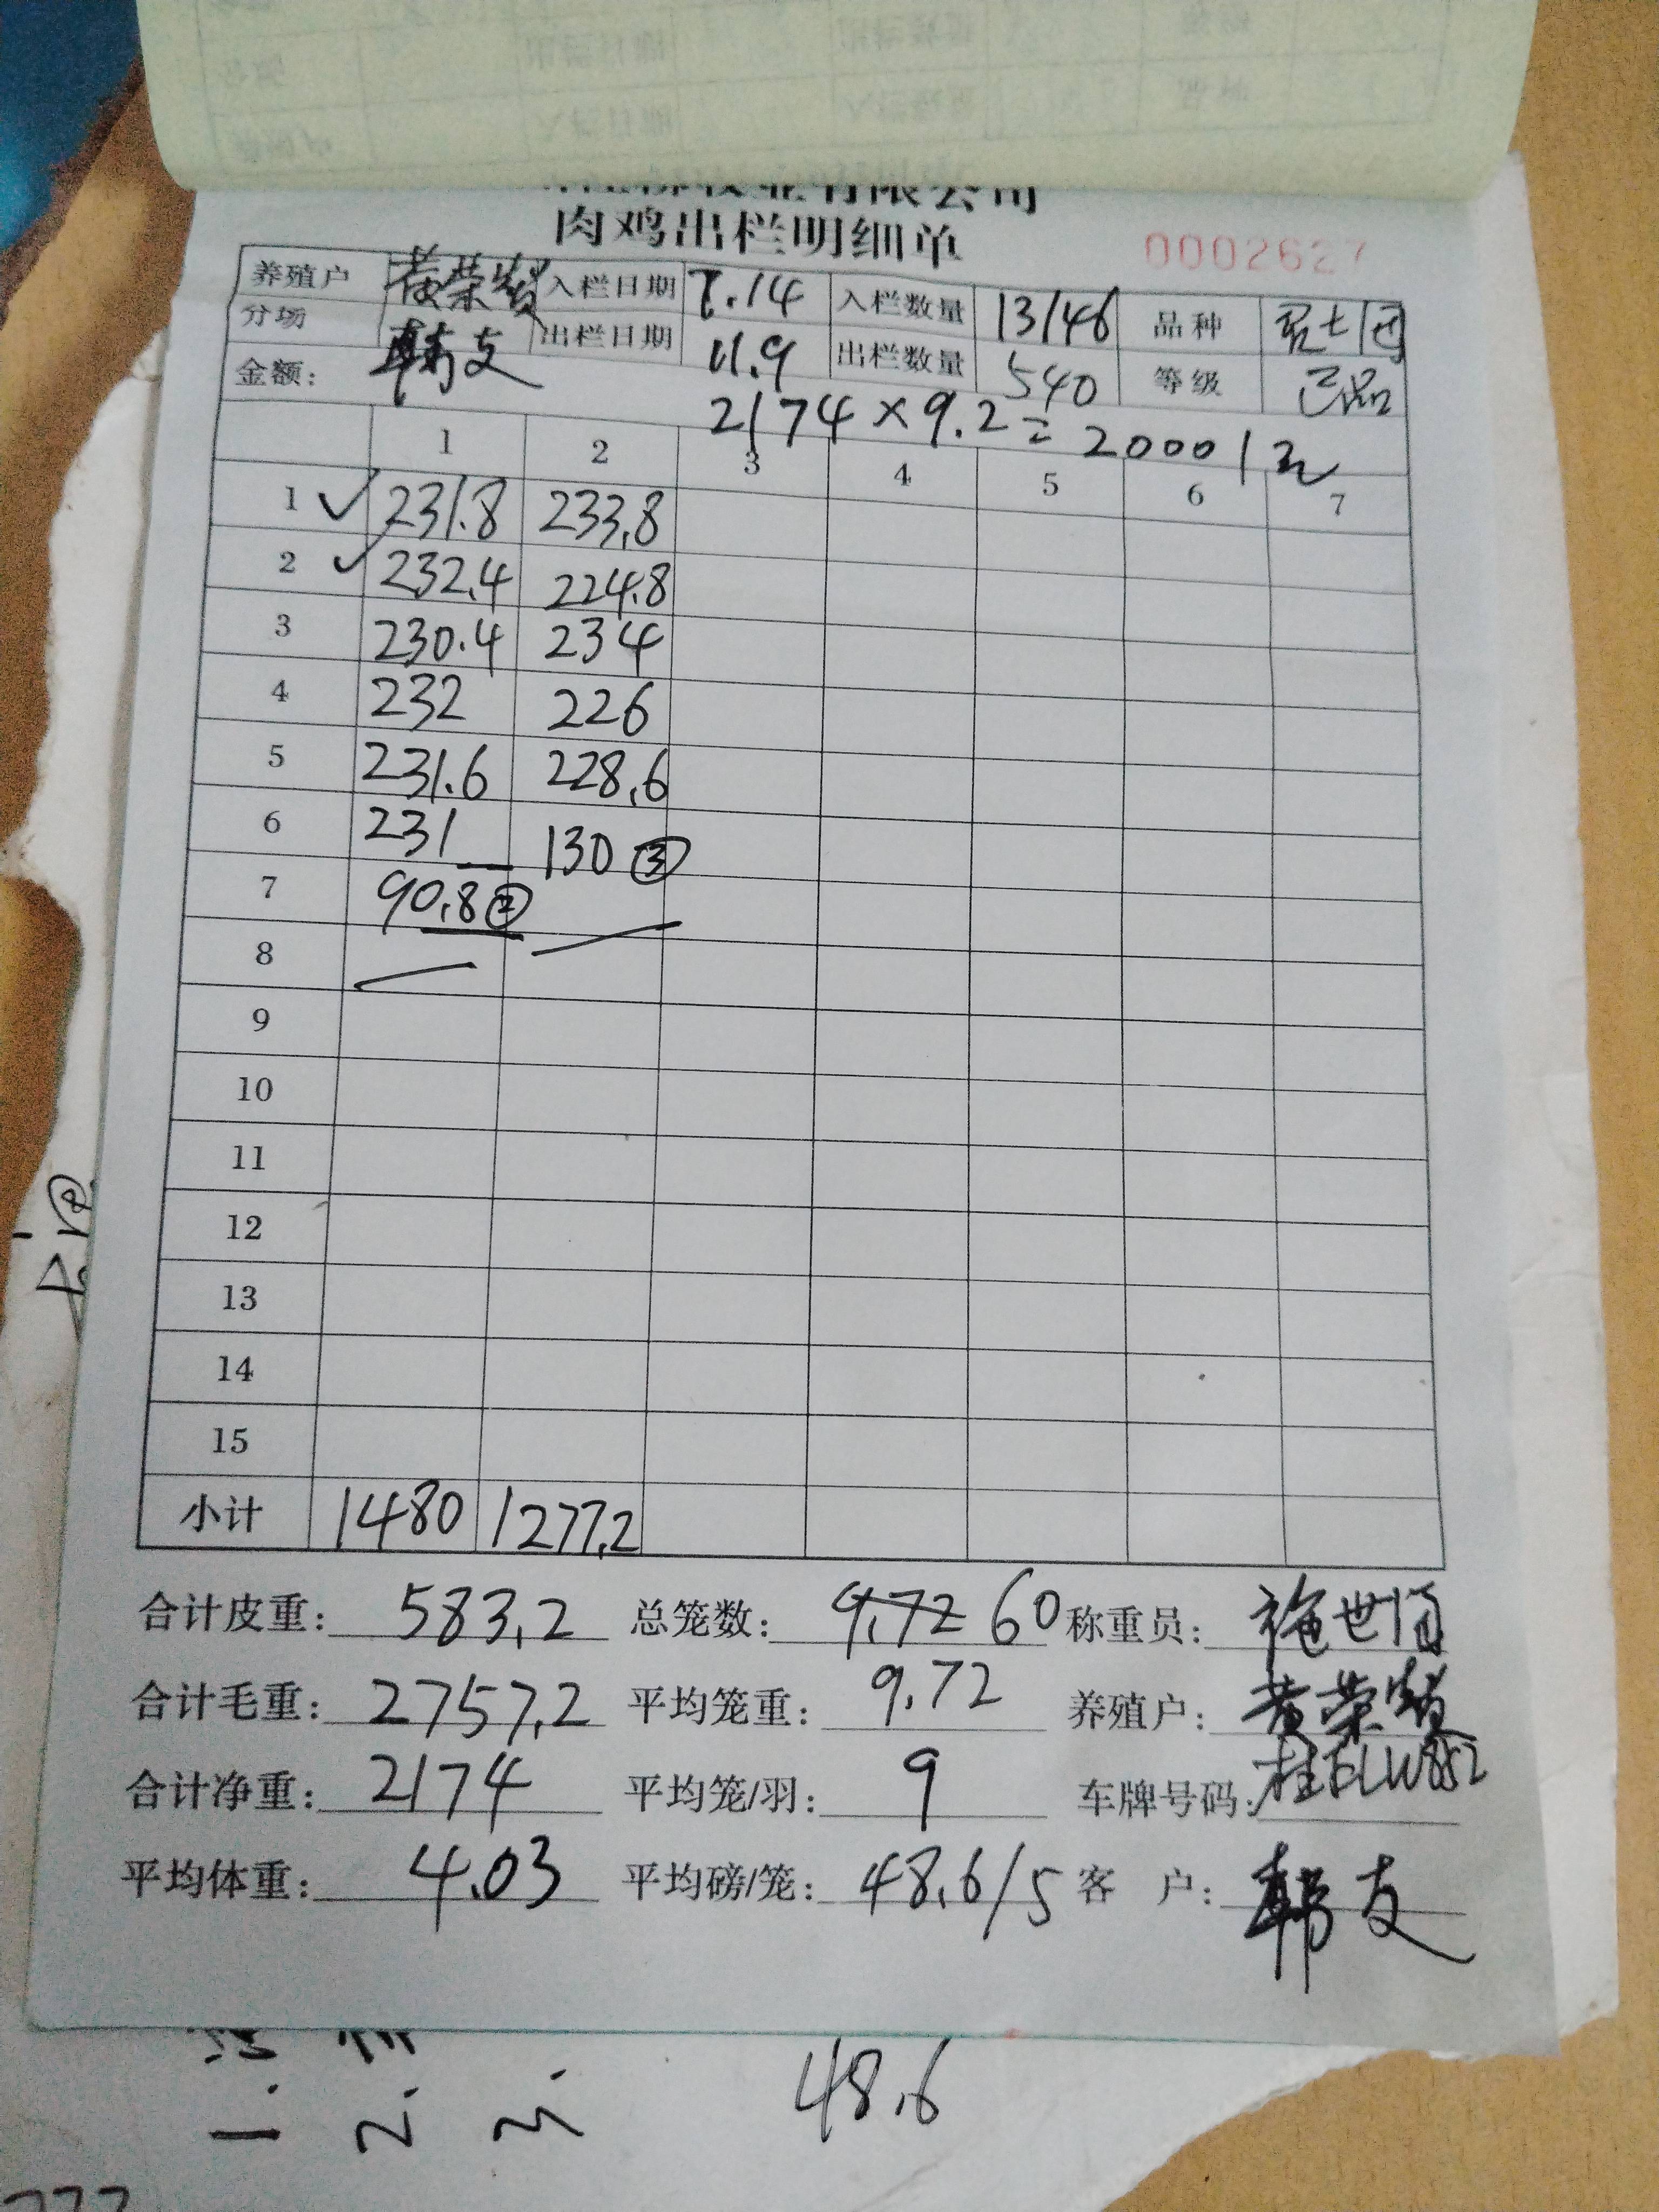 牧业有限公司
肉鸡出栏明细单
0002627
养殖户 黄荣 入栏日期 7.14 入栏数量 13146 品种
分场 韩友 出栏日期 11.9 出栏数量 540 等级 已品
金额: 2174×9.2=20001元
1 2 3 4 5 6 7
1 ✓ 231.8 233.8
2 ✓ 232.4 224.8
3 230.4 234
4 232 226
5 231.6 228.6
6 231 130 ③
7 90.8 ②
8
9
10
11
12
13
14
15
小计 1480 1277.2
合计皮重: 583.2 总笼数: 9.72 60 称重员: 施世
合计毛重: 2757.2 平均笼重: 9.72 养殖户: 黄荣
合计净重: 2174 平均笼/羽: 9 车牌号码: 桂ELW852
平均体重: 4.03 平均磅/笼: 48.6/5 客 户: 韩友
48.6